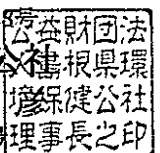 公益財団法
人島根県環
境保健公社
理事長之印
公社
彦